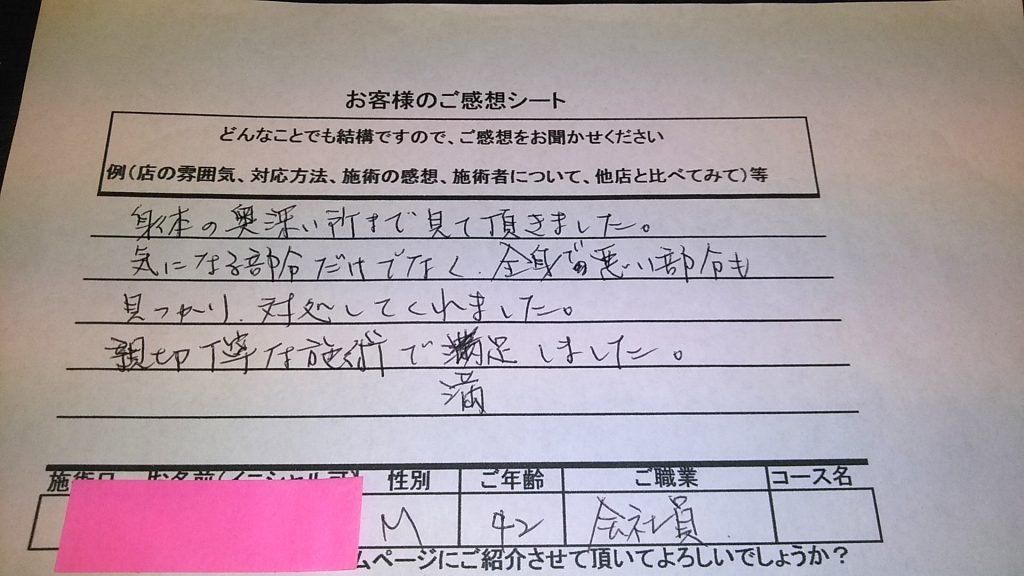 お客様のご感想シート
どんなことでも結構ですので、ご感想をお聞かせください
例(店の雰囲気、対応方法、施術の感想、施術者について、他店と比べてみて)等
身体の奥深い所まで見て頂きました。
気になる部分だけでなく、全身の悪い部分も
見つかり、対処してくれました。
親切丁寧な施術で満足しました。
満
施術日 お名前(イニシャル可) 性別 ご年齢 ご職業 コース名
M 42 会社員
ムページにご紹介させて頂いてよろしいでしょうか?